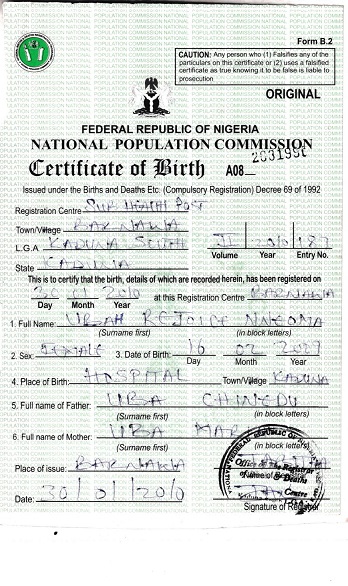 Form B.2
CAUTION: Any person who (1) Falsifies any of the
particulars on this certificate or (2) uses a falsified
certificate as true knowing it to be false is liable to
prosecution
ORIGINAL
FEDERAL REPUBLIC OF NIGERIA
NATIONAL POPULATION COMMISSION
Certificate of Birth A08
Issued under the Births and Deaths Etc. (Compulsory Registration) Decree 69 of 1992
Registration Centre SUB HEALTH POST
Town/Village BARNAWA
L.G.A KADUNA SOUTH II 2010 187
Volume Year Entry No.
State KADUNA
This is to certify that the birth, details of which are recorded herein, has been registered on
30 01 2010 at this Registration Centre BARNAWA
Day Month Year
1. Full Name: UBAH REJOICE NNEOMA
(Surname first) (in block letters)
2. Sex: FEMALE 3. Date of Birth: 16 02
Day Month Year
4. Place of Birth: HOSPITAL Town/Village KADUNA
5. Full name of Father: UBA CHINEDU
(Surname first) (in block letters)
6. Full name of Mother: UBA
(Surname first) (in block letters)
Place of issue: BARNAWA
Date: 30/01/2010
Signature of Registrar